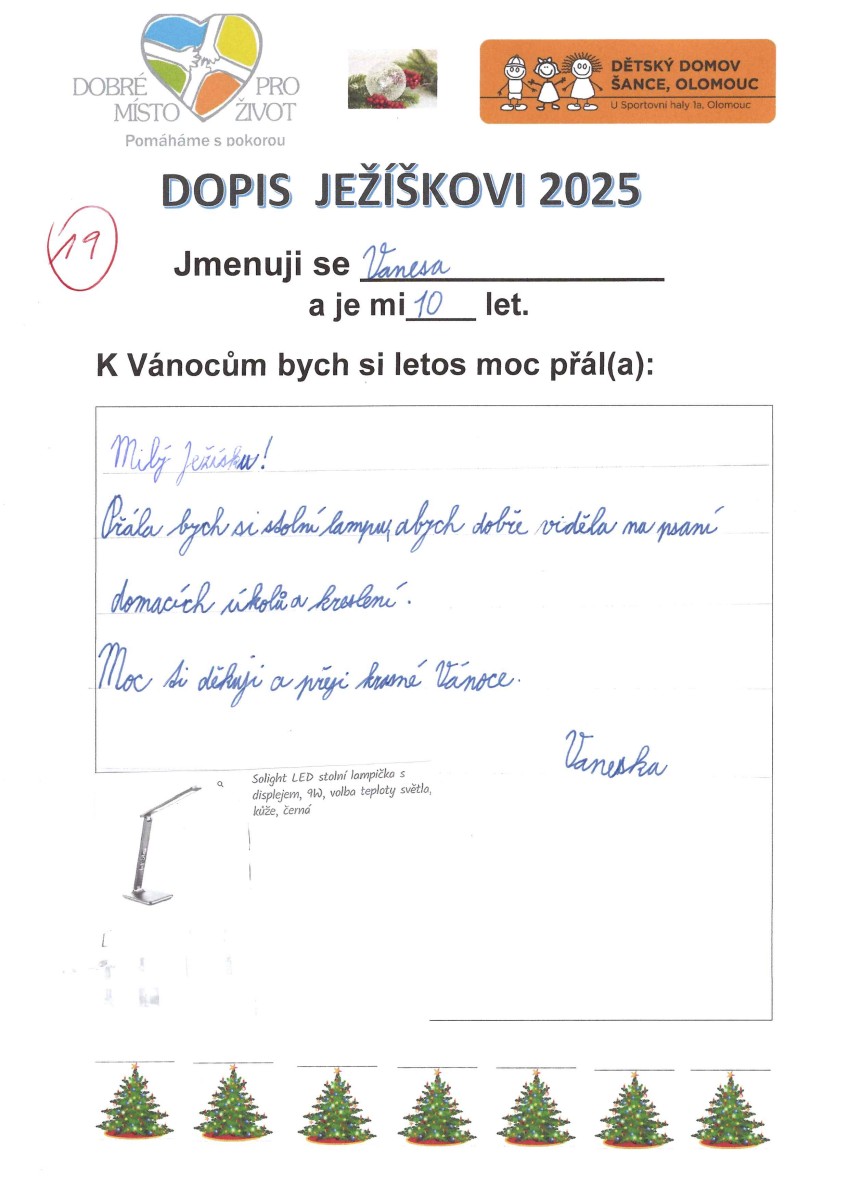 DOBRÉ PRO
MÍSTO ŽIVOT
Pomáháme s pokorou
DĚTSKÝ DOMOV
ŠANCE, OLOMOUC
U Sportovní haly 1a, Olomouc
DOPIS JEŽÍŠKOVI 2025
19
Jmenuji se Vanesa
a je mi 10 let.
K Vánocům bych si letos moc přál(a):
Milý Ježíšku!
Přála bych si stolní lampu, abych dobře viděla na psaní
domacích úkolů a kreslení.
Moc si děkuji a přeji krasné Vánoce.
Vaneska
Solight LED stolní lampička s
displejem, 9W, volba teploty světla,
kůže, černá